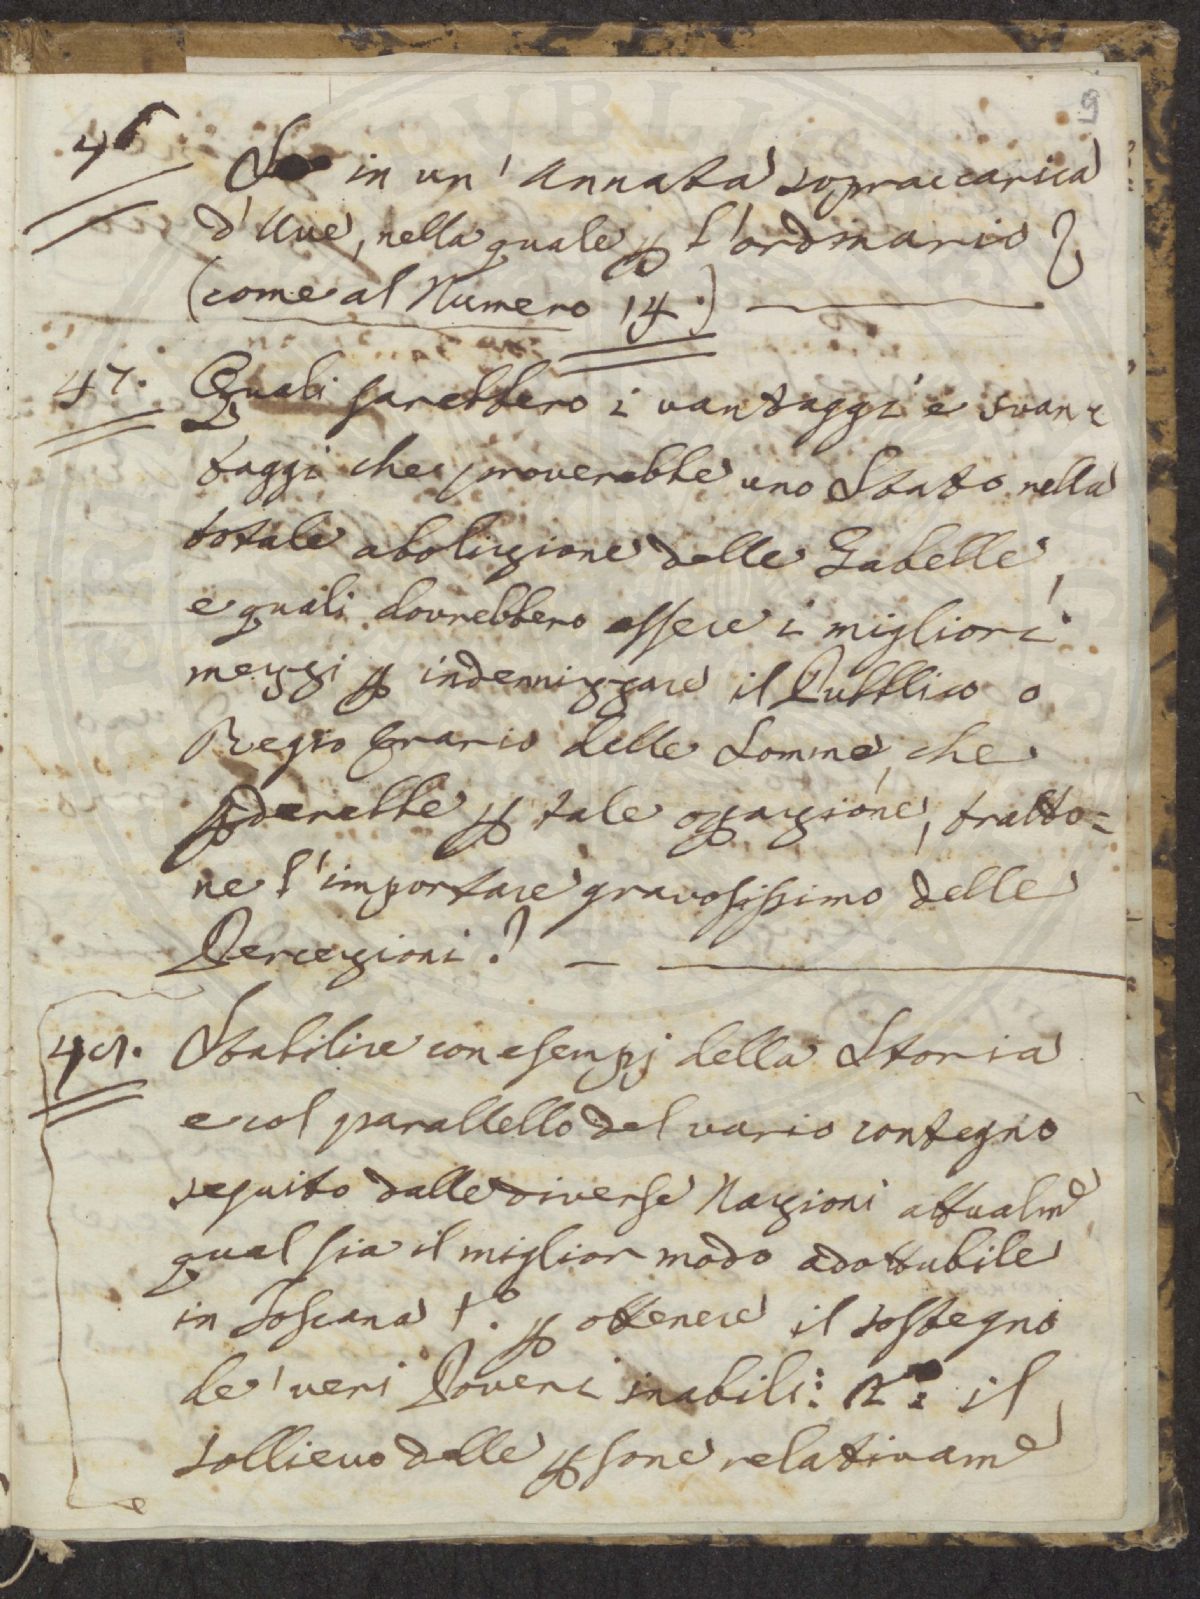 9
46
Se in un' annata sopraccarica
d'Uve, nella quale p l'ordinario &
(come al Numero 14.)
47. Quali sarebbero i vantaggi e svan=
taggi che proverebbe uno Stato nella
totale abolizione delle Gabelle,
e quali dovrebbero essere i migliori
mezzi p indennizzare il Pubblico o
Regio Erario delle Somme, che
pderebbe p tale opazione, tratto=
ne l'importare gravosissimo delle
Percezioni?
48. Stabilire con esempj della Storia
e col parallello del vario contegno
seguito dalle diverse Nazioni attualme
qual sia il miglior modo adottabile
in Toscana 1.° p ottenere il sostegno
de' veri Poveri inabili: 2.° il
sollievo delle psone relativame